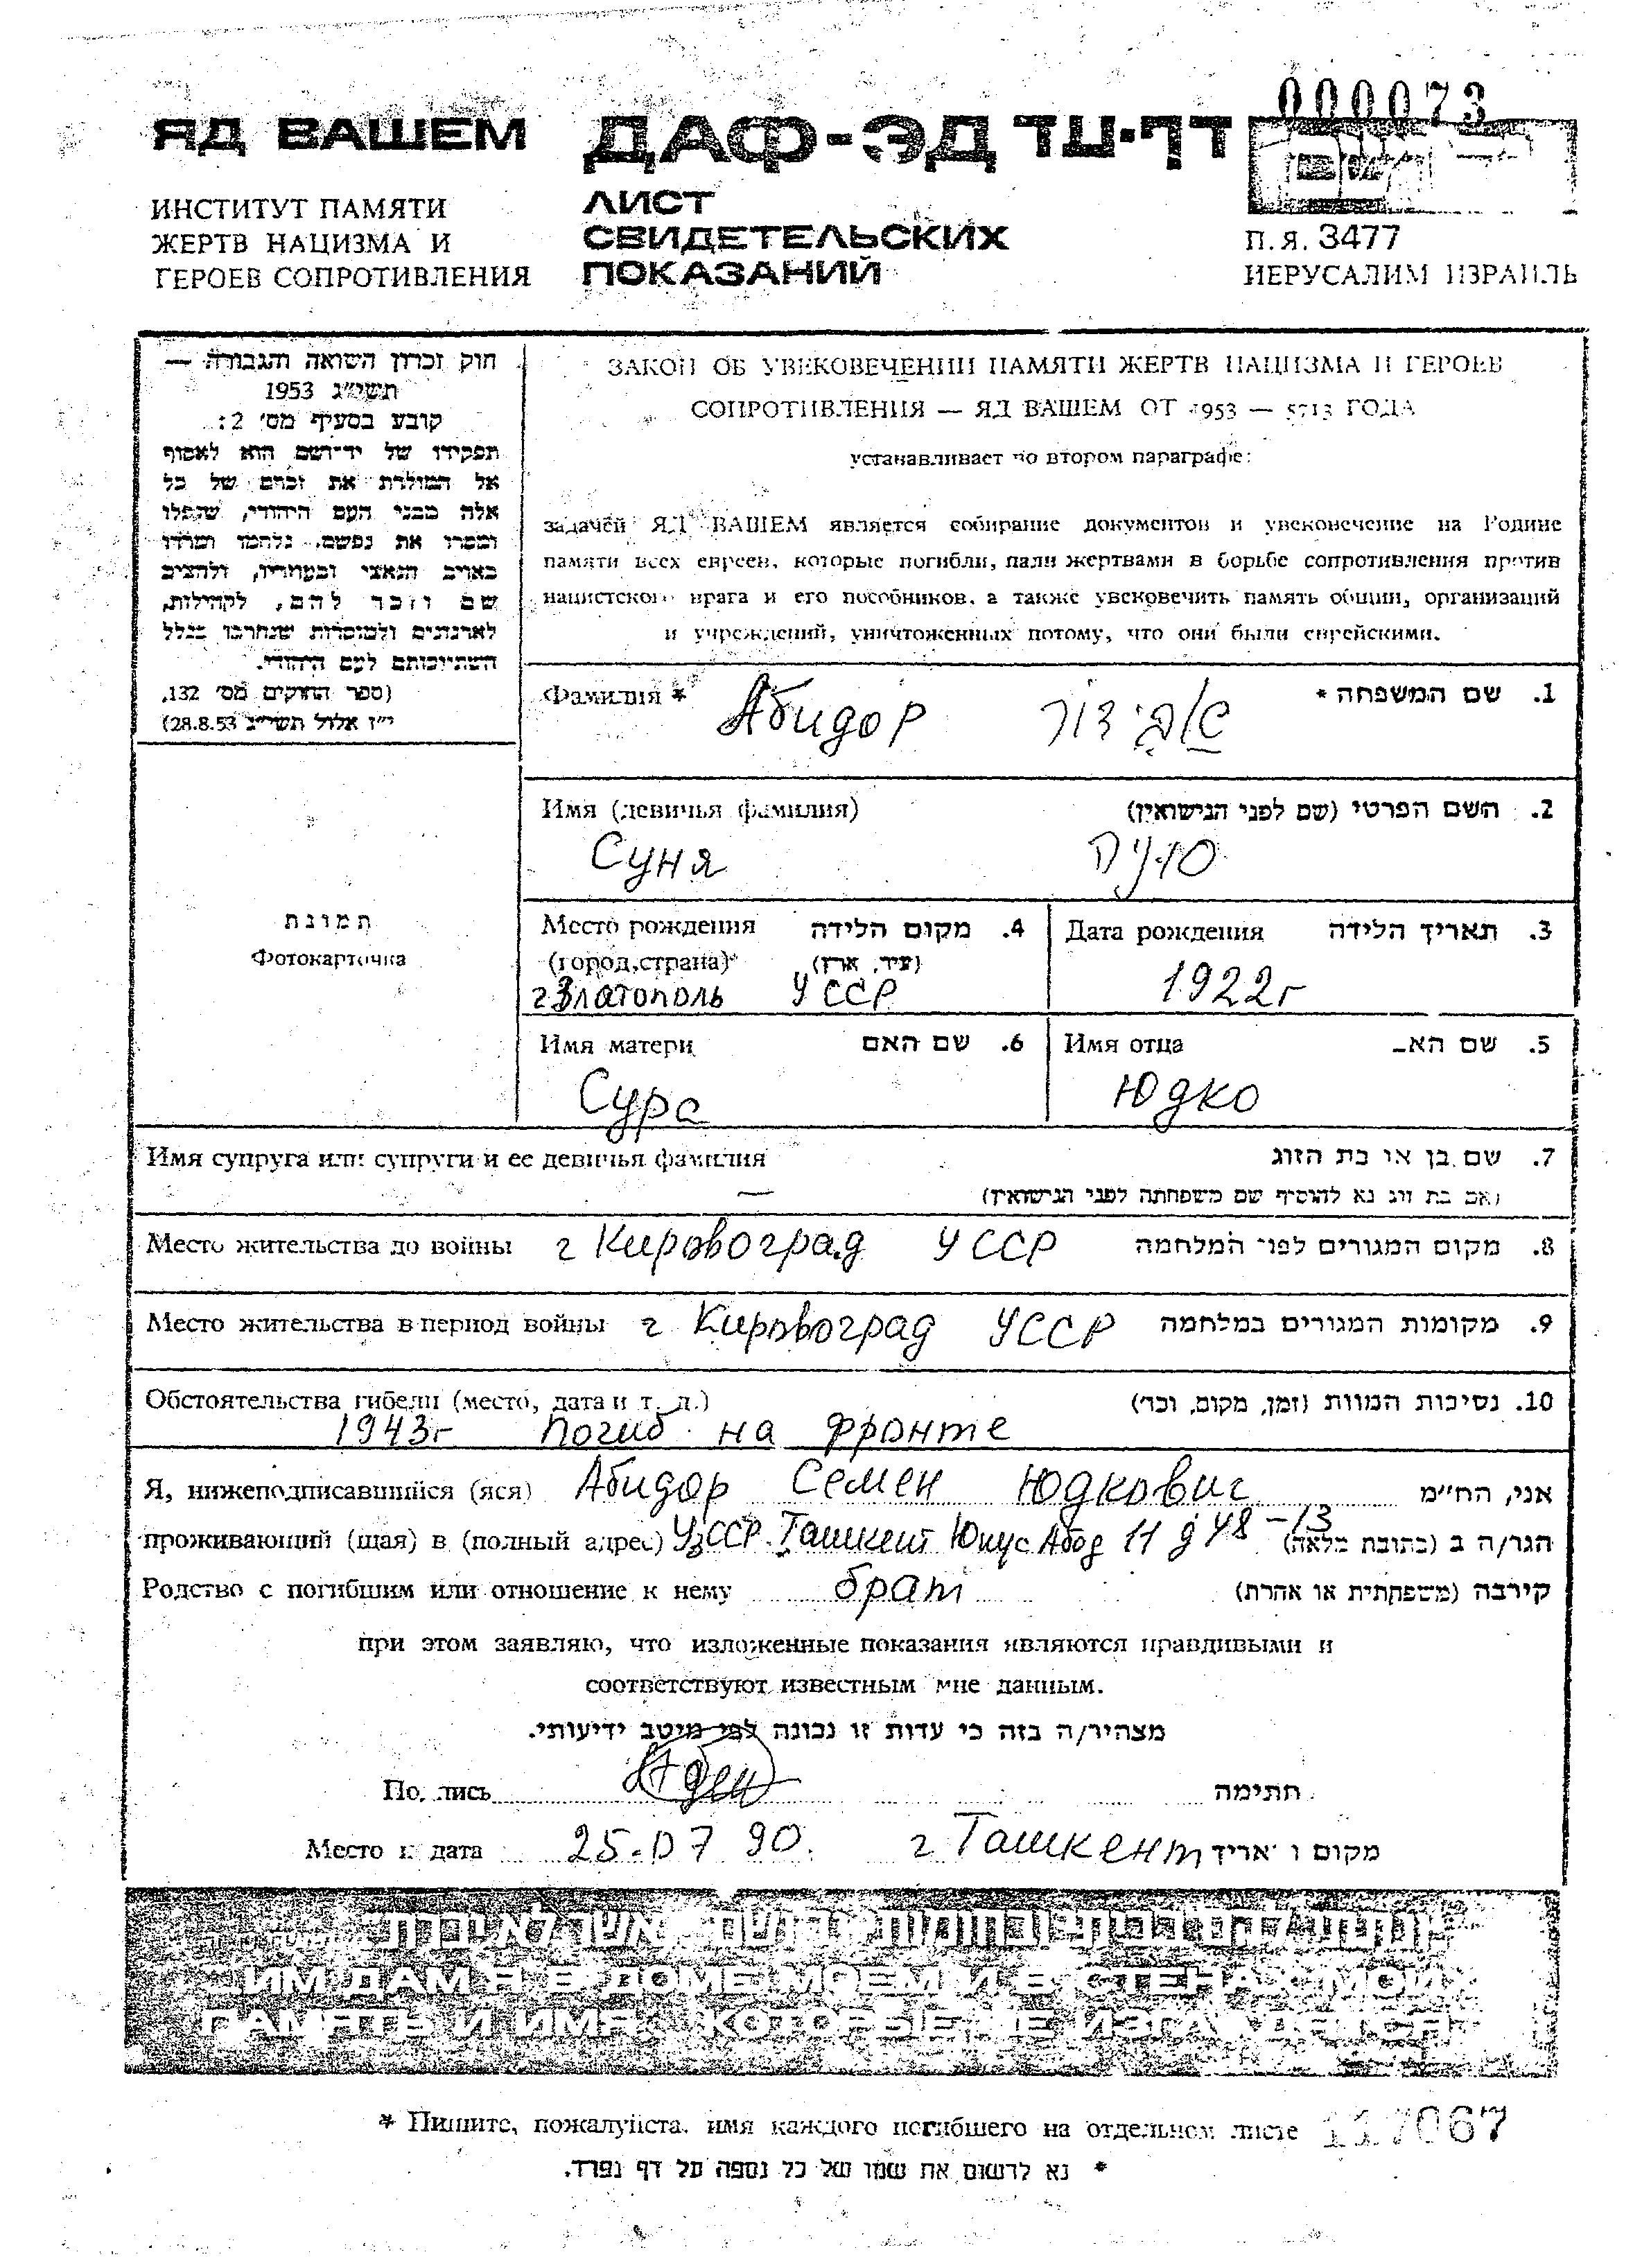 000073
ЯД ВАШЕМ
ДАФ-ЭД דף-עד
ИНСТИТУТ ПАМЯТИ
ЖЕРТВ НАЦИЗМА И
ГЕРОЕВ СОПРОТИВЛЕНИЯ
ЛИСТ
СВИДЕТЕЛЬСКИХ
ПОКАЗАНИЙ
П.Я. 3477
ИЕРУСАЛИМ ИЗРАИЛЬ
חוק זכרון השואה והגבורה —
תשי״ג 1953
קובע בסעיף מס׳ 2:
תפקידו של יד־ושם הוא לאסוף
אל המולדת את זכרם של כל
אלה מבני העם היהודי, שנפלו
ומסרו את נפשם, נלחמו ומרדו
באויב הנאצי ובעוזריו, ולהציב
שם וזכר להם, לקהילות,
לארגונים ולמוסדות שנחרבו בגלל
השתייכותם לעם היהודי.
(ספר החוקים מס׳ 132,
י״ז אלול תשי״ג 28.8.53)
ЗАКОН ОБ УВЕКОВЕЧЕНИИ ПАМЯТИ ЖЕРТВ НАЦИЗМА И ГЕРОЕВ
СОПРОТИВЛЕНИЯ — ЯД ВАШЕМ ОТ 1953 — 5713 ГОДА
устанавливает во втором параграфе:
задачей ЯД ВАШЕМ является собирание документов и увековечение на Родине
памяти всех евреев, которые погибли, пали жертвами в борьбе сопротивления против
нацистского врага и его пособников, а также увековечить память общин, организаций
и учреждений, уничтоженных потому, что они были еврейскими.
Фамилия * Абидор אבידור 1. שם המשפחה *
Имя (девичья фамилия) 2. השם הפרטי (שם לפני הנישואין)
Суня סוניה
תמונת
Фотокарточка
Место рождения 4. מקום הלידה
(город,страна) (עיר, ארץ)
г Златополь УССР
Дата рождения 3. תאריך הלידה
1922г
Имя матери 6. שם האם
Сура
Имя отца 5. שם הא
Юдко
Имя супруга или супруги и ее девичья фамилия 7. שם בן או בת הזוג
— (אם בת זוג נא להוסיף שם משפחתה לפני הנישואין)
Место жительства до войны г Кировоград УССР 8. מקום המגורים לפני המלחמה
Место жительства в период войны г Кировоград УССР 9. מקומות המגורים במלחמה
Обстоятельства гибели (место, дата и т. д.) 10. נסיבות המוות (זמן, מקום, וכד׳)
1943г погиб на фронте
Я, нижеподписавшийся (яся) Абидор Семен Юдкович אני, הח״מ
проживающий (щая) в (полный адрес) УзССР. Ташкент Юнус Абод 11 д 48 -13 הגר/ה ב (כתובת מלאה)
Родство с погибшим или отношение к нему брат קירבה (משפחתית או אחרת)
при этом заявляю, что изложенные показания являются правдивыми и
соответствуют известным мне данным.
מצהיר/ה בזה כי עדות זו נכונה לפי מיטב ידיעותי.
Подпись חתימה
Место и дата 25.07 90. г Ташкент מקום ותאריך
ונתתי להם בביתי ובחומותי יד ושם... אשר לא יכרת
...ИМ ДАМ Я В ДОМЕ МОЕМ И В СТЕНАХ МОИХ
ПАМЯТЬ И ИМЯ... КОТОРЫЕ НЕ ИЗГЛАДЯТСЯ
* Пишите, пожалуйста, имя каждого погибшего на отдельном листе 117067
* נא לרשום את שמו של כל נספה על דף נפרד.